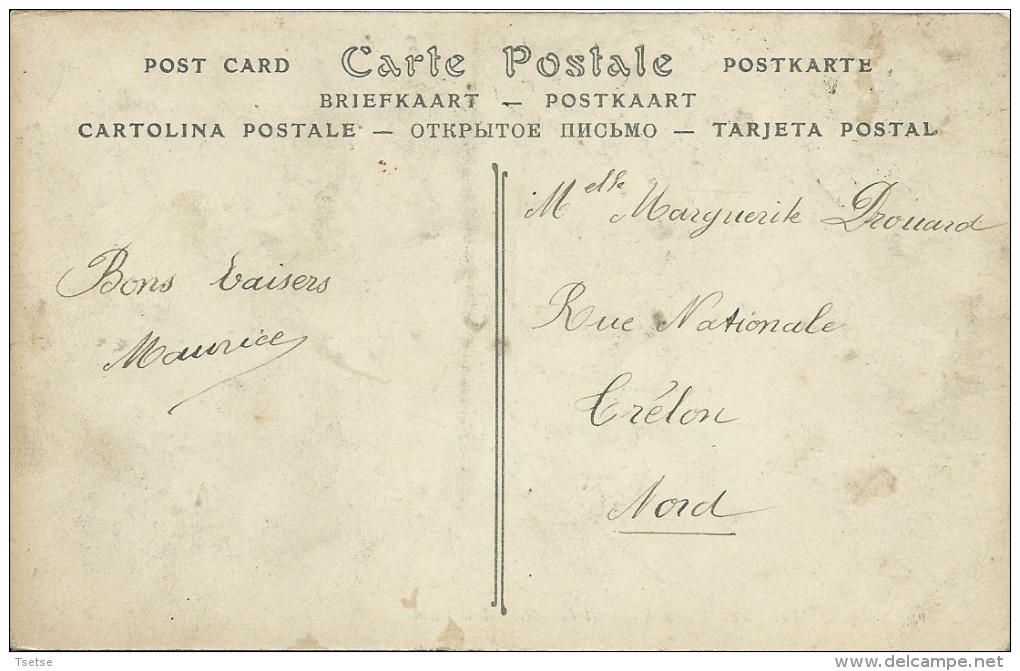 POST CARD Carte Postale POSTKARTE
BRIEFKAART — POSTKAART
CARTOLINA POSTALE — ОТКРЫТОЕ ПИСЬМО — TARJETA POSTAL
Bons baisers
Maurice
Melle Marguerite Drouard
Rue Nationale
Trélon
Nord
Tsetse
delcampe.net